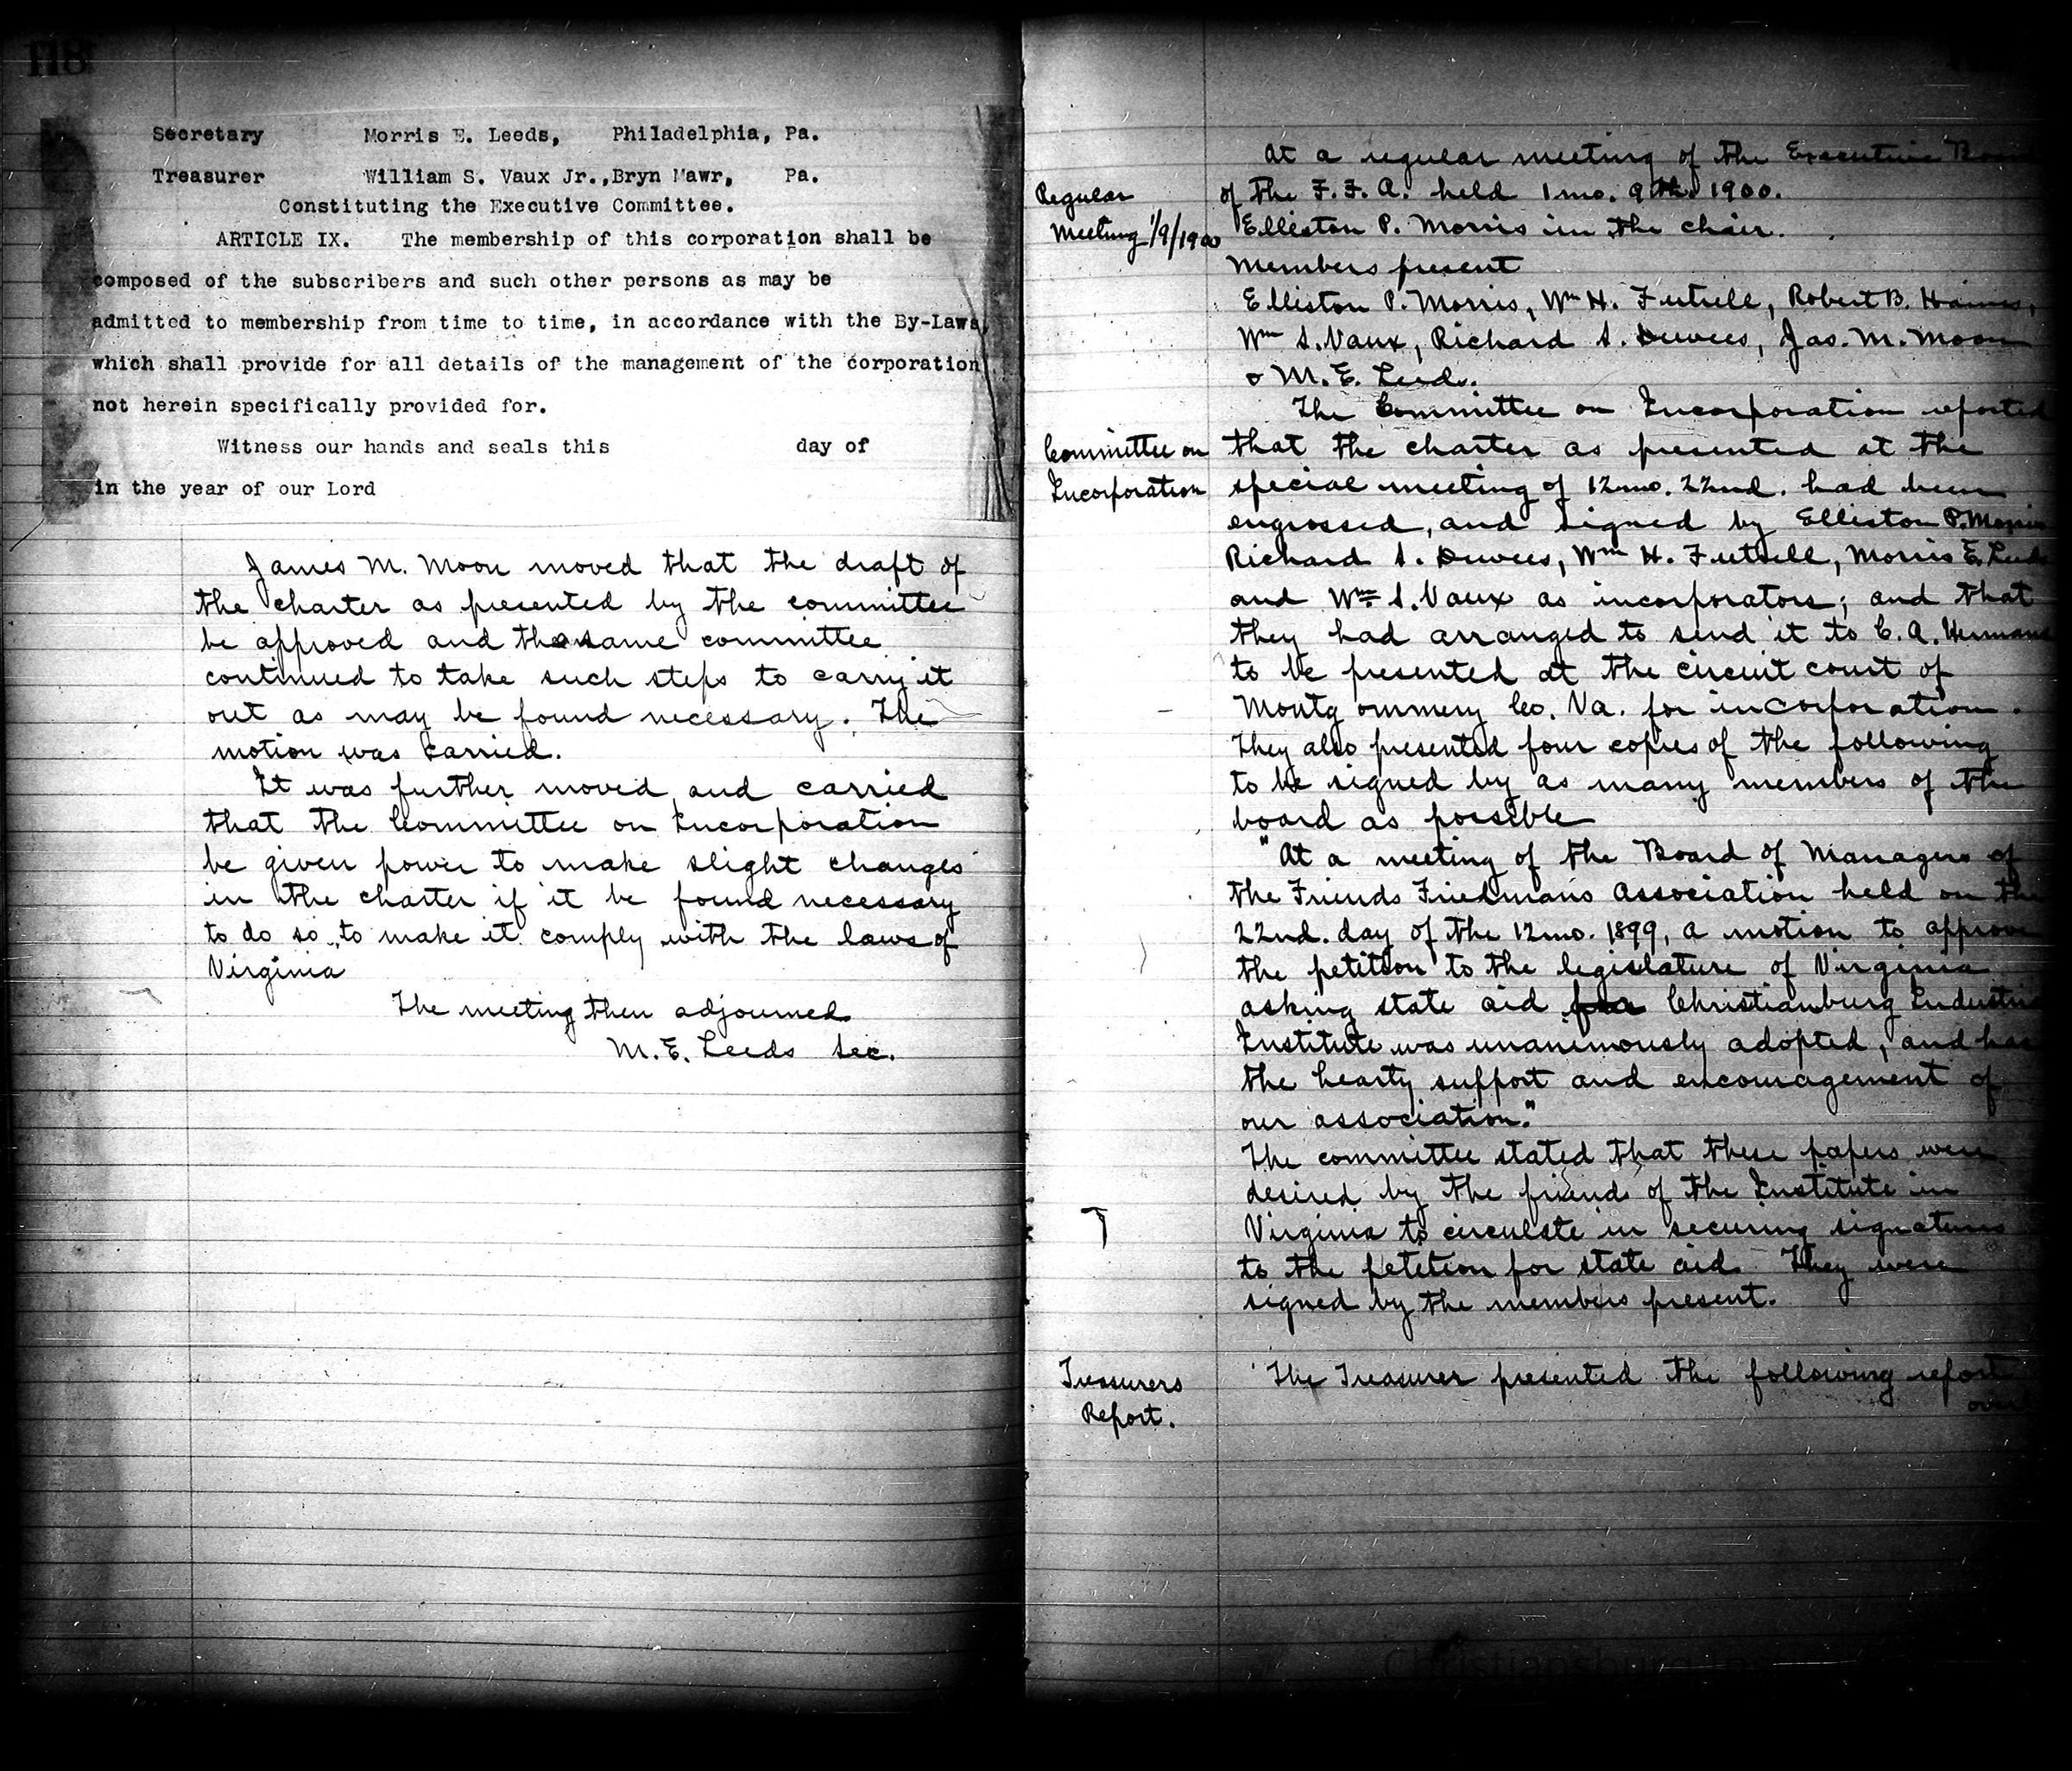 118
Secretary Morris E. Leeds, Philadelphia, Pa.
Treasurer William S. Vaux Jr., Bryn Mawr, Pa.
Constituting the Executive Committee.
ARTICLE IX. The membership of this corporation shall be
composed of the subscribers and such other persons as may be
admitted to membership from time to time, in accordance with the By-Laws,
which shall provide for all details of the management of the corporation
not herein specifically provided for.
Witness our hands and seals this day of
in the year of our Lord
James M. Moon moved that the draft of
the charter as presented by the committee
be approved and the same committee
continued to take such steps to carry it
out as may be found necessary. The
motion was carried.
It was further moved and carried
that the Committee on Incorporation
be given power to make slight changes
in the charter if it be found necessary
to do so, to make it comply with the laws of
Virginia
The meeting then adjourned
M. E. Leeds Sec.
At a regular meeting of the Executive
of the F. F. A. held 1 mo. 9th. 1900.
Regular
Meeting 1/9/1900
Elliston P. Morris in the chair.
Members present
Elliston P. Morris, Wm H. Futrell, Robert B. Haines,
Wm S. Vaux, Richard S. Dewees, Jas. M. Moon
& M. E. Leeds.
The Committee on Incorporation reported
Committee on
Incorporation
that the charter as presented at the
special meeting of 12 mo. 22nd. had been
engrossed, and signed by Elliston P. Morris
Richard S. Dewees, Wm H. Futrell, Morris E. Leeds
and Wm S. Vaux as incorporators; and that
they had arranged to send it to C. A. Hermans
to be presented at the circuit court of
Montgommery Co. Va. for incorporation.
They also presented four copies of the following
to be signed by as many members of the
board as possible
"At a meeting of the Board of Managers of
the Friends Friedmans Association held on the
22nd. day of the 12 mo. 1899, a motion to approve
the petition to the legislature of Virginia
asking state aid for Christianburg Industrial
Institute was unanimously adopted, and has
the hearty support and encouragement of
our association."
The committee stated that these papers were
desired by the friends of the Institute in
Virginia to circulate in securing signatures
to the petetion for state aid. They were
signed by the members present.
Treasurers
Report.
The Treasurer presented the following report
over